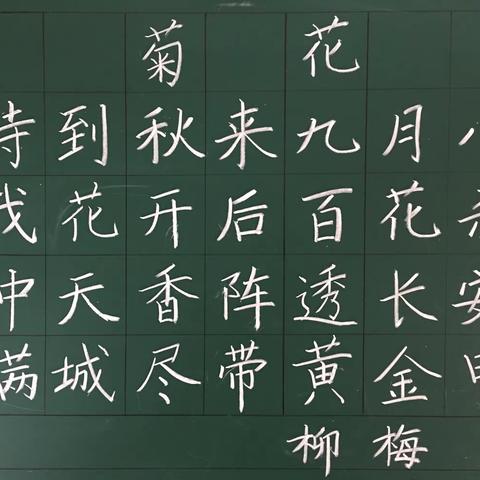 菊花
待到秋来九月
我花开后百花
冲天香阵透长安
满城尽带黄金
柳梅